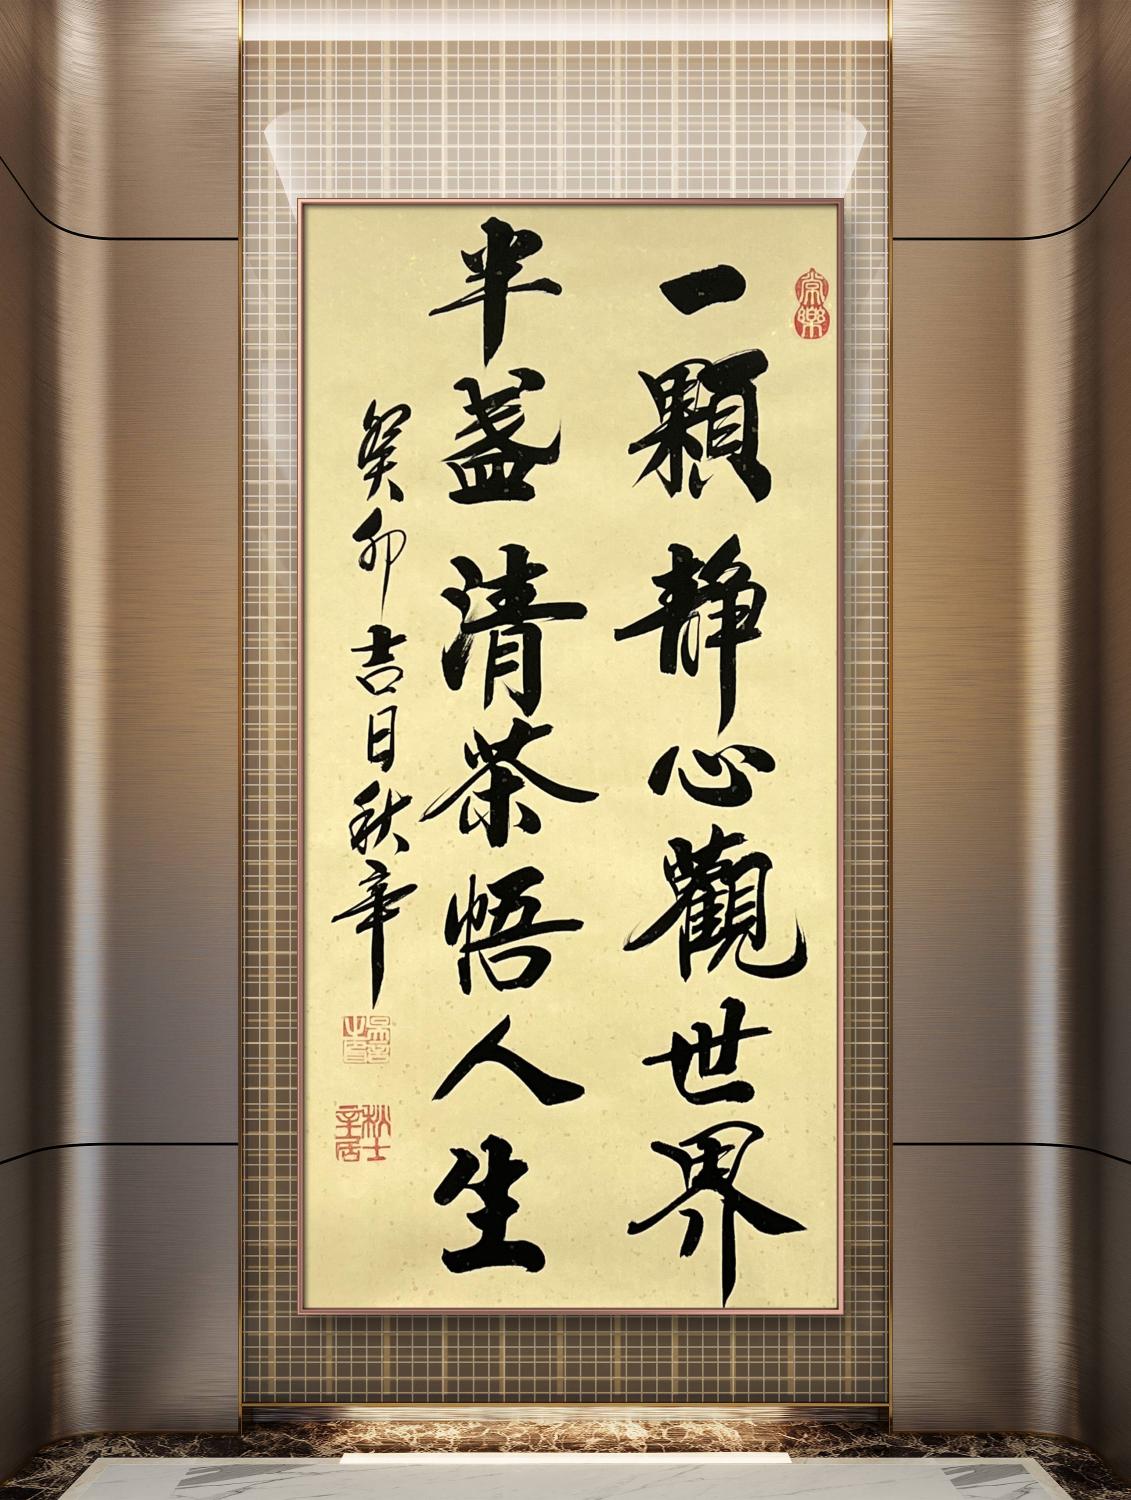 常樂
一顆靜心觀世界
半盞清茶悟人生
癸卯吉日秋辛